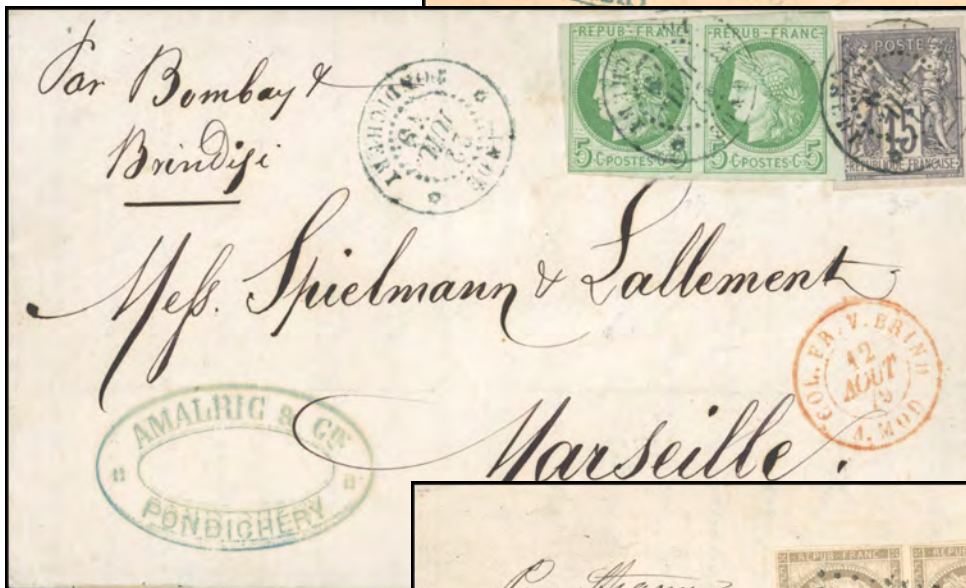 Par Bombay &
Brindisi
INDE
PONDICHERY
22
JUIL
79
REPUB·FRANC·
5 C·POSTES·C·5
REPUB·FRANC·
5 C·POSTES·C·5
POSTE
15
REPUBLIQUE FRANÇAISE
Mess. Spielmann & Lallement
COL. FR. V. BRIND
12
AOUT
79
A. MOD
Marseille.
AMALRIC & CIE
PONDICHÉRY
REPUB·FRANC·
REPUB·FRANC·